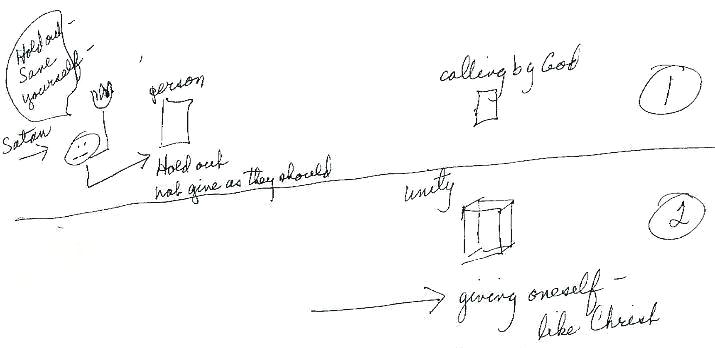 Hold out -
Save
yourself -
Satan
person
Hold out
not give as they should
calling by God
1
unity
2
giving oneself -
like Christ